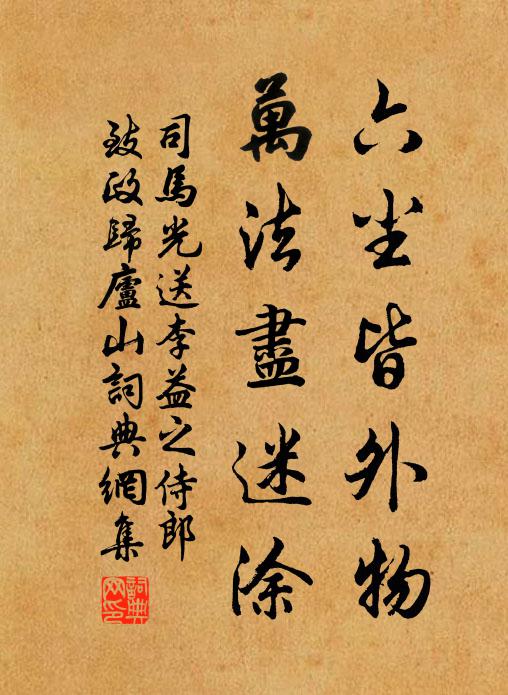 六尘皆外物
萬法盡迷涂
司馬光送李益之侍郎
致政歸廬山詞典網集
詞典
网印